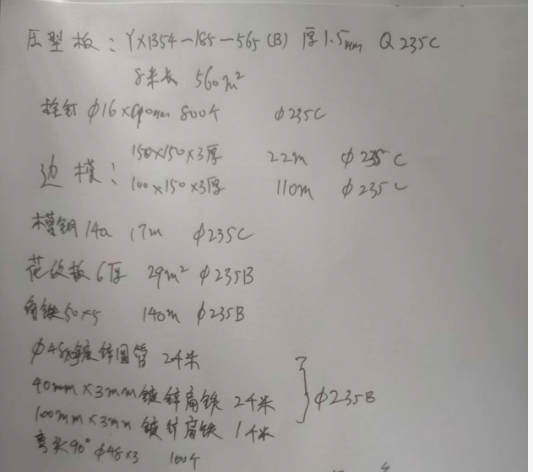 压型板：YX1354-185-565(B) 厚1.5mm Q235C
8米长 560m²
栓钉 φ16×90mm 800个 φ235C
边模：150×150×3厚 22m φ235C
100×150×3厚 110m φ235C
槽钢14a 17m φ235C
花纹板6厚 29m² φ235B
角铁50×5 140m φ235B
φ48 镀锌圆管 24米
40mm×3mm 镀锌扁铁 24米 } φ235B
100mm×3mm 镀锌扁铁 14米
弯头90° φ48×3 100个